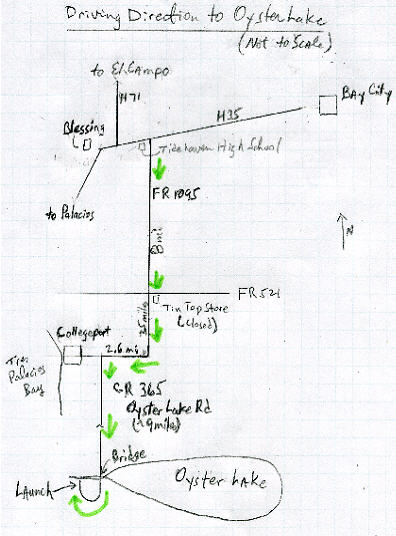 Driving Direction to Oyster Lake
(Not to Scale)
to El Campo
H71
Bay City
H35
Blessing
Tidehaven High School
FR 1095
to Palacios
N
8 mi
FR 521
3.5 miles
Tin Top Store
(closed)
Collegeport
2.6 mi
Tres
Palacios
Bay
CR 365
Oyster Lake Rd
(~9 miles)
Bridge
Oyster Lake
Launch